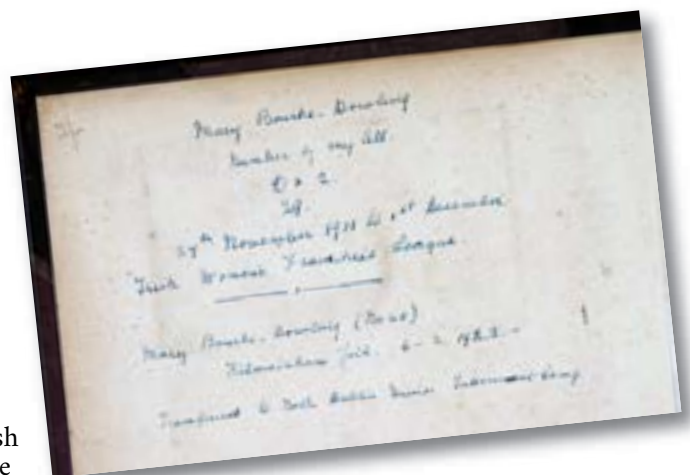 Mary Bourke-Dowling
Number of my Cell.
2
29th November 1911 to 1st December
Irish Women's Franchise League.
Mary Bourke-Dowling
Kilmainham Jail. 6-2
Transferred to North Dublin Union Internment Camp
sh
e